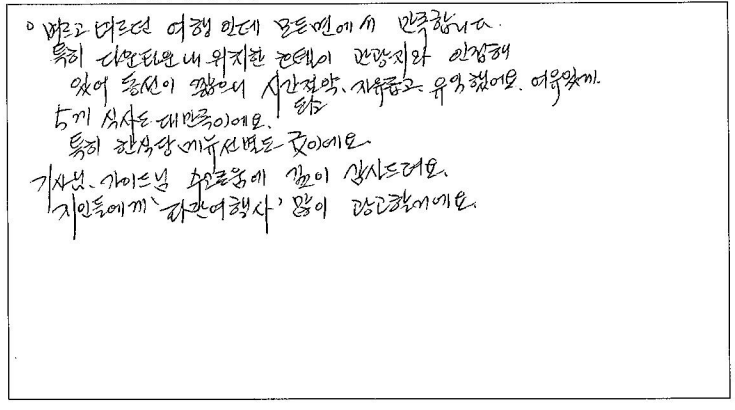 ○ 벼르고 벼르던 여행 인데 모든면에서 만족합니다.
특히 다운타운내 위치한 호텔이 관광지와 인접해
있어 동선이 짧으니 시간절약, 자유롭고 유익했어요. 여유있게.
5끼 식사도 대만족이에요.
특히 한식당 메뉴선별도 굿이에요.
기사님, 가이드님 수고로움에 깊이 감사드려요.
지인들에게 '파란여행사' 많이 광고할게요.